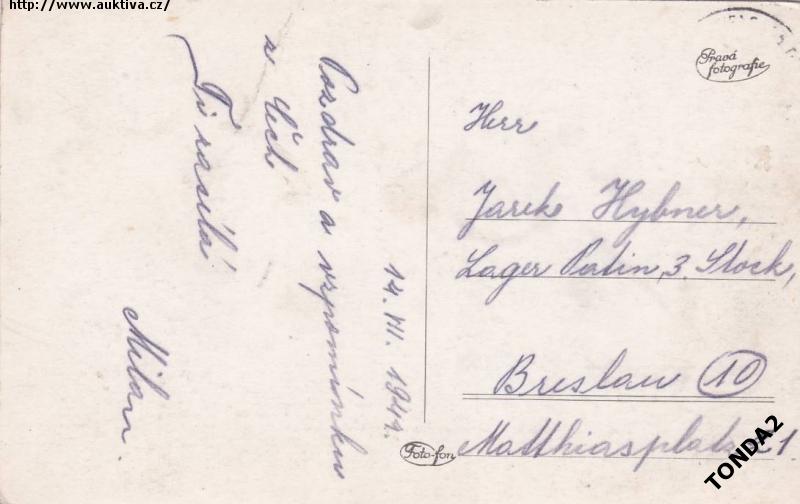 http://www.auktiva.cz/
Pravá
fotografie
14. VII. 1941.
Pozdrav a vzpomínku
z Čech
Ti zasílá
Milan.
Herr
Jarek Hybner,
Lager Patin, 3. Stock,
Breslau 10
Matthiasplatz 1.
Foto-fon
TONDA2